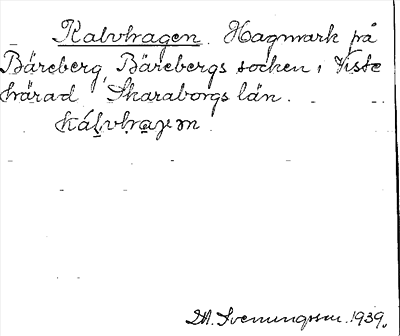 Kalvhagen. Hagmark på
Bäreberg, Bärebergs socken, Viste
härad, Skaraborgs län.
kál̠vha̠gɐn.
M. Svenungsson. 1939.